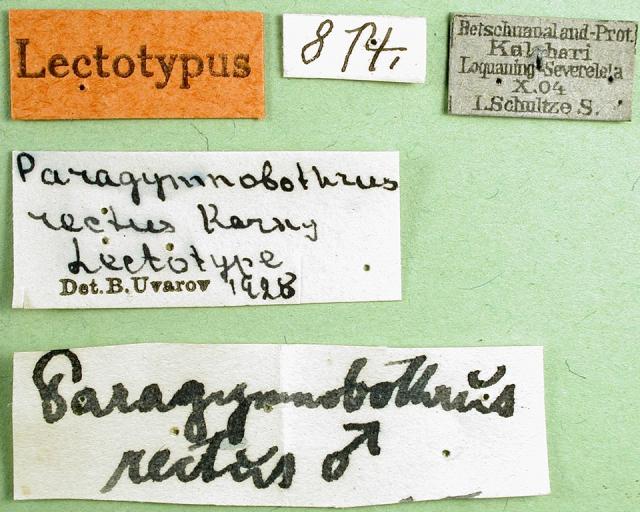 Lectotypus
8 Pt.
Betschuanaland-Prot.
Kalahari
Loquaning-Severelela
X.04
L.Schultze S.
Paragymnobothrus
rectus Karny
Lectotype
Det. B. Uvarov 1928
Paragymnobothrus
rectus ♂